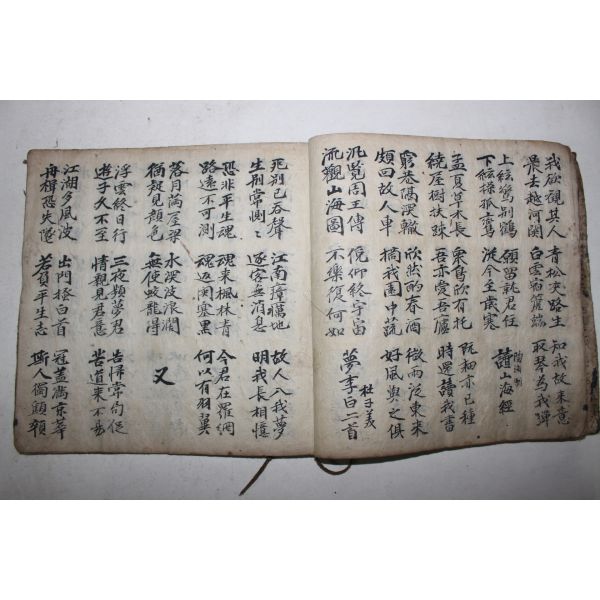 我欲觀其人
晨去越河關
青松夾路生
白雲宿簷端
知我故來意
取琴為我彈
上絃驚別鶴
下絃操孤鸞
願留就君住
從今至歲寒
讀山海經
陶淵明
孟夏草木長
繞屋樹扶疎
衆鳥欣有托
吾亦愛吾廬
既耕亦已種
時還讀我書
窮巷隔深轍
頗回故人車
欣然酌春酒
摘我園中蔬
微雨從東來
好風與之俱
汎覽周王傳
流觀山海圖
俛仰終宇宙
不樂復何如
夢李白二首
杜子美
死別已吞聲
生別常惻〻
江南瘴癘地
逐客無消息
故人入我夢
明我長相憶
恐非平生魂
路遠不可測
魂來楓林青
魂返関塞黑
今君在羅網
何以有羽翼
落月滿屋梁
猶疑見顏色
水深波浪濶
無使蛟龍得
又
浮雲終日行
遊子久不至
三夜頻夢君
情親見君意
告歸常局促
苦道來不易
江湖多風波
舟楫恐失墜
出門搔白首
若負平生志
冠蓋滿京華
斯人獨顦顇